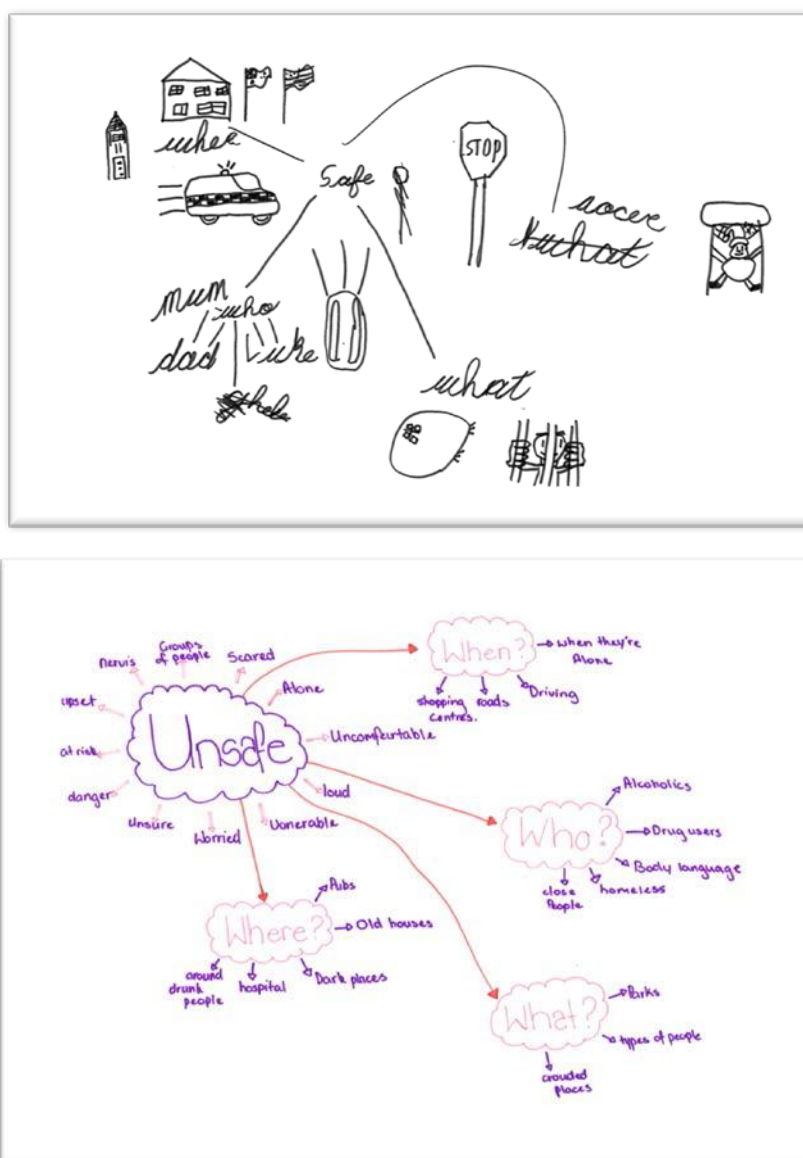 whee
Safe
STOP
socce
what
mum
who
dad
Luke
what
Unsafe
Groups
of people
nervis
Scared
upset
Alone
at risk
Uncomfurtable
danger
loud
Unsure
Worried
Vonerable
When?
when they're
Alone
shopping
centres.
roads
Driving
Who?
Alcoholics
Drug users
Body language
homeless
close
People
Where?
Pubs
Old houses
Dark places
hospital
around
drunk
people
What?
Parks
types of people
crouded
places